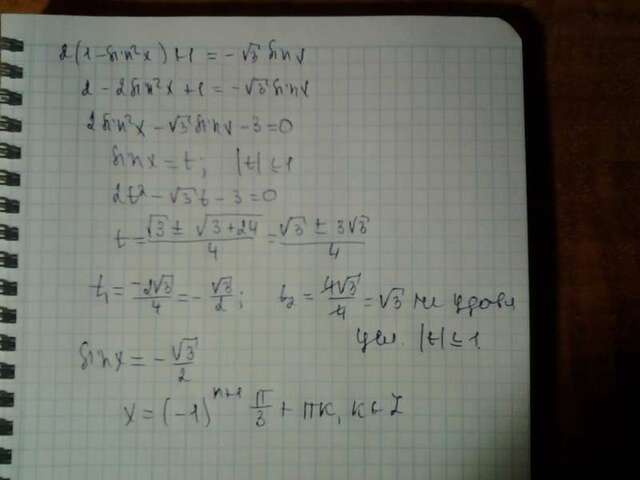 2(1-sin²x)+1 = -√3 sinx
2 - 2sin²x + 1 = -√3 sinx
2sin²x - √3 sinx - 3 = 0
sinx = t; |t| ≤ 1
2t² - √3t - 3 = 0
t = (√3 ± √(3+24))/4 = (√3 ± 3√3)/4
t₁ = (-2√3)/4 = -√3/2; t₂ = 4√3/4 = √3 не удовл
усл. |t| ≤ 1.
sinx = -√3/2
x = (-1)ⁿ⁺¹ π/3 + πк, к ∈ Z